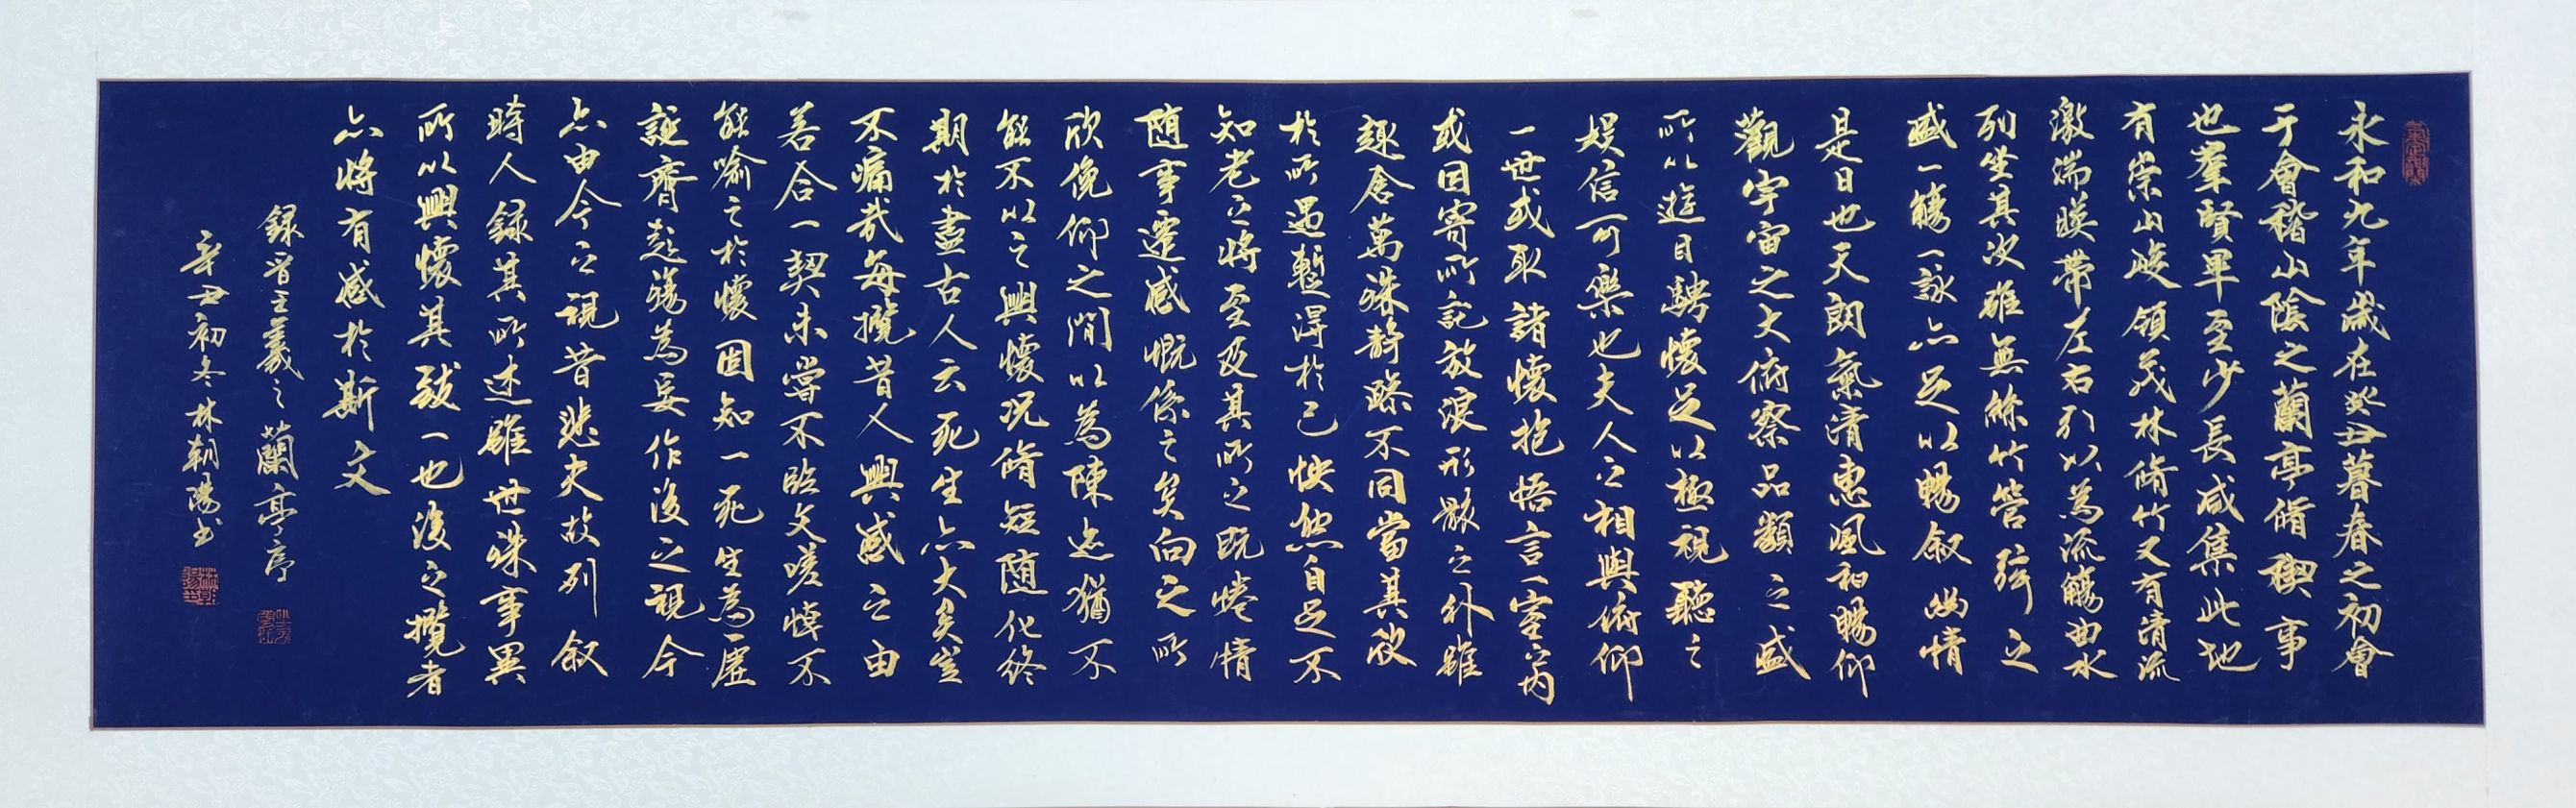 永和九年歲在癸丑暮春之初會
于會稽山陰之蘭亭脩禊事
也羣賢畢至少長咸集此地
有崇山峻領茂林脩竹又有清流
激湍暎帶左右引以為流觴曲水
列坐其次雖無絲竹管弦之
盛一觴一詠亦足以暢叙幽情
是日也天朗氣清惠風和暢仰
觀宇宙之大俯察品類之盛
所以遊目騁懷足以極視聽之
娛信可樂也夫人之相與俯仰
一世或取諸懷抱悟言一室之內
或因寄所託放浪形骸之外雖
趣舍萬殊靜躁不同當其欣
於所遇蹔得於己怏然自足不
知老之將至及其所之既惓情
隨事遷感慨係之矣向之所
欣俛仰之閒以為陳迹猶不
能不以之興懷況脩短隨化終
期於盡古人云死生亦大矣豈
不痛哉每攬昔人興感之由
若合一契未嘗不臨文嗟悼不
能喻之於懷固知一死生為虛
誕齊彭殤為妄作後之視今
亦由今之視昔悲夫故列叙
時人錄其所述雖世殊事異
所以興懷其致一也後之攬者
亦將有感於斯文
錄晉王羲之蘭亭序
辛丑初冬林朝陽书